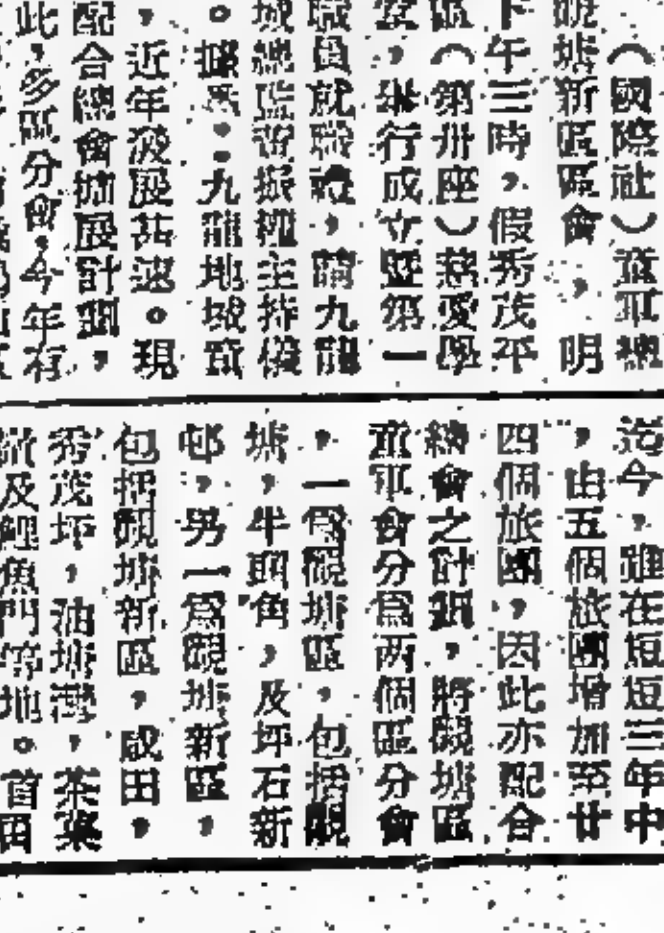 （國際社）童軍總
觀塘新區區會，明
下午三時，假秀茂平
區（第卅座）慈愛學
，舉行成立暨第一
職員就職禮，請九龍
域總監曾振 主持儀
。據悉：九龍地域
，近年發展甚速。現
配合總會擴展計劃，
此，多區分會，今年有
迄今，雖在短短三年中
，由五個旅團增加至廿
四個旅團，因此亦配合
總會之計劃，將觀塘區
童軍會分爲两個區分會
，一爲觀塘區，包括觀
塘，牛頭角，及坪石新
邨，另一爲觀塘新區，
包括觀塘新區，咸田，
秀茂坪，油塘灣，茶菓
嶺及鯉魚門等地。首